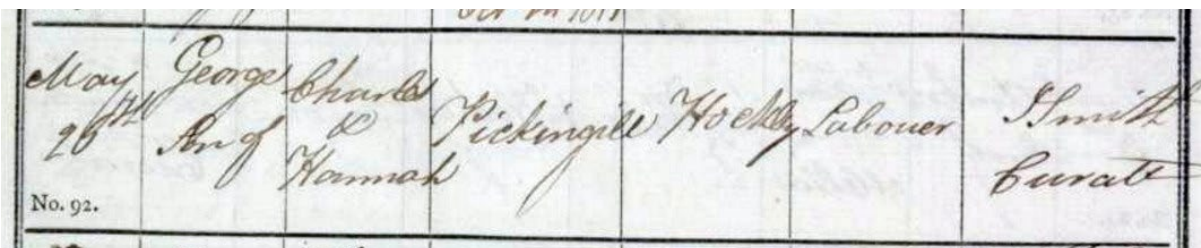 May
26th
No. 92.
George
Son of
Charles
&
Hannah
Pickingill
Hockley
Labourer
Smith
Curate